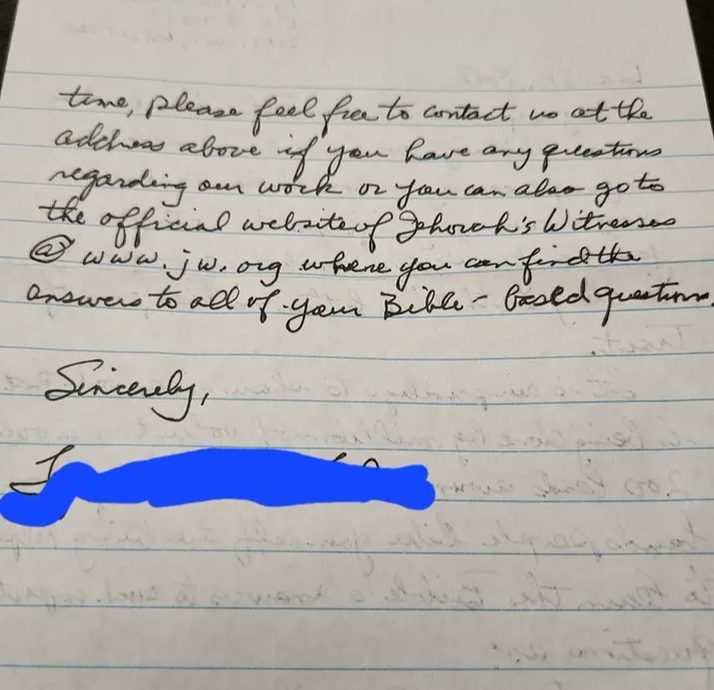 time, please feel free to contact us at the
address above if you have any questions
regarding our work or you can also go to
the official website of Jehovah's Witnesses
@ www.jw.org where you can find the
answers to all of your Bible-based questions.
Sincerely,